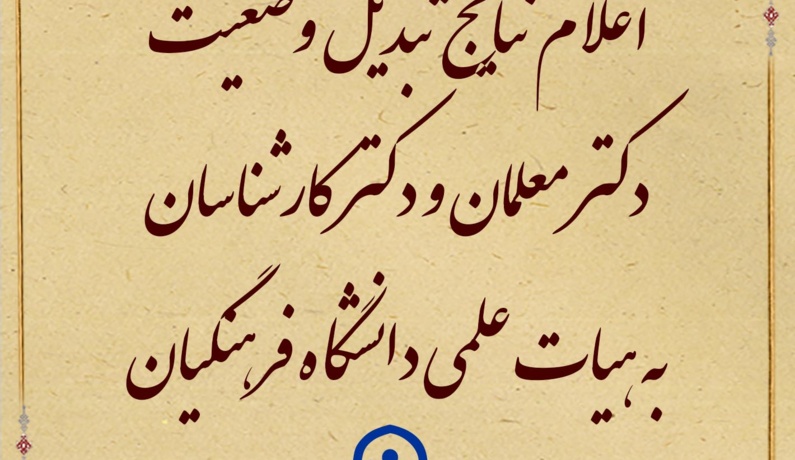 اعلام نتایج تبدیل وضعیت
دکتر معلمان و دکتر کارشناسان
به هیات علمی دانشگاه فرهنگیان